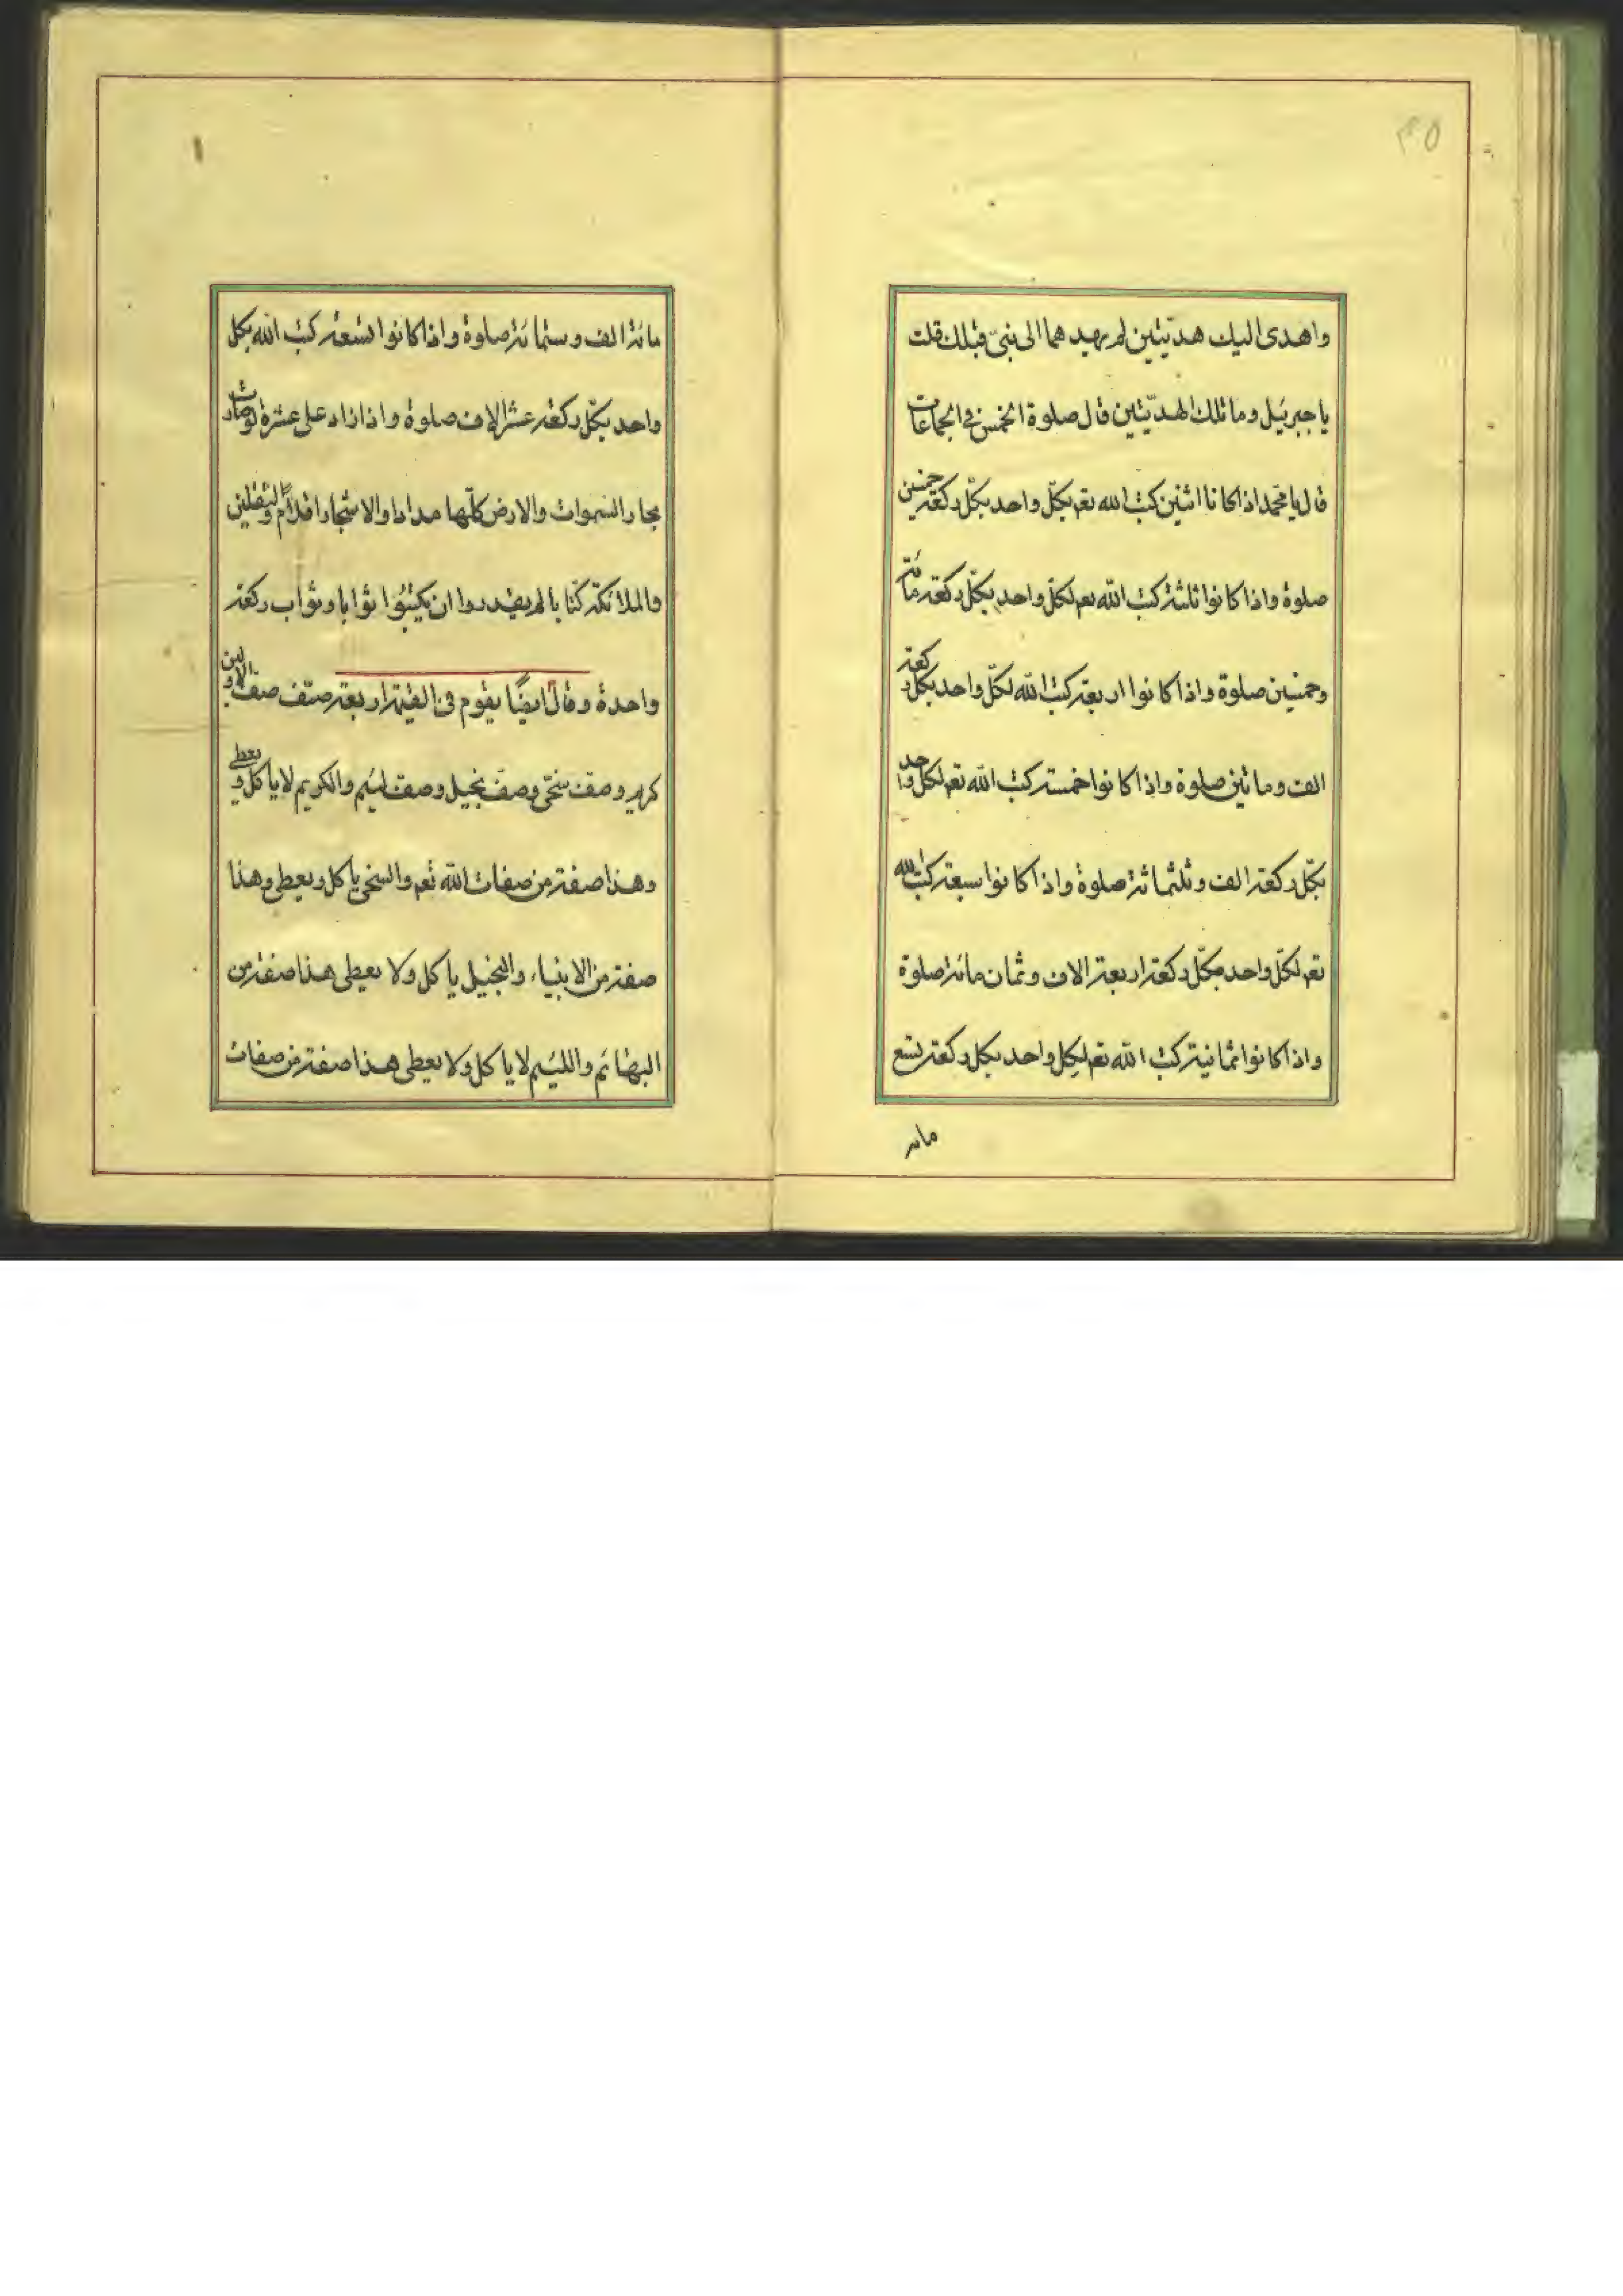 ٣٥
واهدى اليك هديّتين لم يهدهما الى نبىّ قبلك قلت
يا جبرئيل وما تلك الهديّتين قال صلوة الخمس فى الجماعات
قال يا محمد اذا كانا اثنين كتب الله تعم بكلّ واحد بكلّ ركعة خمسين
صلوة واذا كانوا ثلثة كتب الله تعم لكلّ واحد بكلّ ركعة مائة
وخمسين صلوة واذا كانوا اربعة كتب الله لكلّ واحد بكل ركعة
الف وماتين صلوة واذا كانوا خمسة كتب الله تعم لكل واحد
بكلّ ركعة الف وثلثمائة صلوة واذا كانوا سبعة كتب الله
تعم لكلّ واحد بكلّ ركعة اربعة الاف وثمان مائة صلوة
واذا كانوا ثمانية كتب الله تعم لكل واحد بكل ركعة تسع
مائه
مائة الف وستمائة صلوة واذا كانوا تسعة كتب الله بكل
واحد بكلّ ركعة عشر الاف صلوة واذا زاد على عشرة لو صارت
بحار السموات والارض كلّها مدادا والاشجار اقلام والثقلين
والملائكة كتّابا لم يقدروا ان يكتبوا ثوابا وثواب ركعة
واحدة وقال ايضًا يقوم فى القيمة اربعة صفّ صف الاولين
كريم وصف سخىّ وصفّ بخيل وصف لئيم والكريم لا ياكل ويعطى
وهذا صفة من صفات الله تعم والسخى ياكل ويعطى وهذا
صفة من الانبياء والبخيل ياكل ولا يعطى هذا صفة من
البهائم واللئيم لا ياكل ولا يعطى هذا صفة من صفات